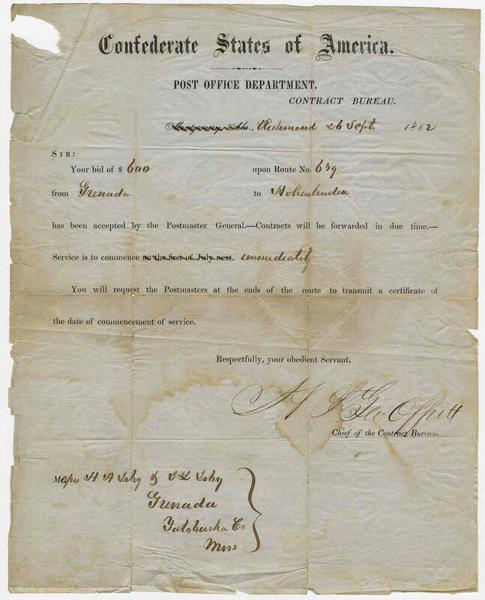 Confederate States of America.
POST OFFICE DEPARTMENT.
CONTRACT BUREAU.
Montgomery, Ala., Richmond 26 Sept. 1862
SIR:
Your bid of $ 600 upon Route No. 639
from Grenada to Hohenlinden
has been accepted by the Postmaster General.—Contracts will be forwarded in due time.—
Service is to commence on the first of July next. immediately
You will request the Postmasters at the ends of the route to transmit a certificate of
the date of commencement of service.
Respectfully, your obedient Servant,
Geo Offutt
Chief of the Contract Bureau.
H A & S L
Grenada
Yalobusha Co
Miss